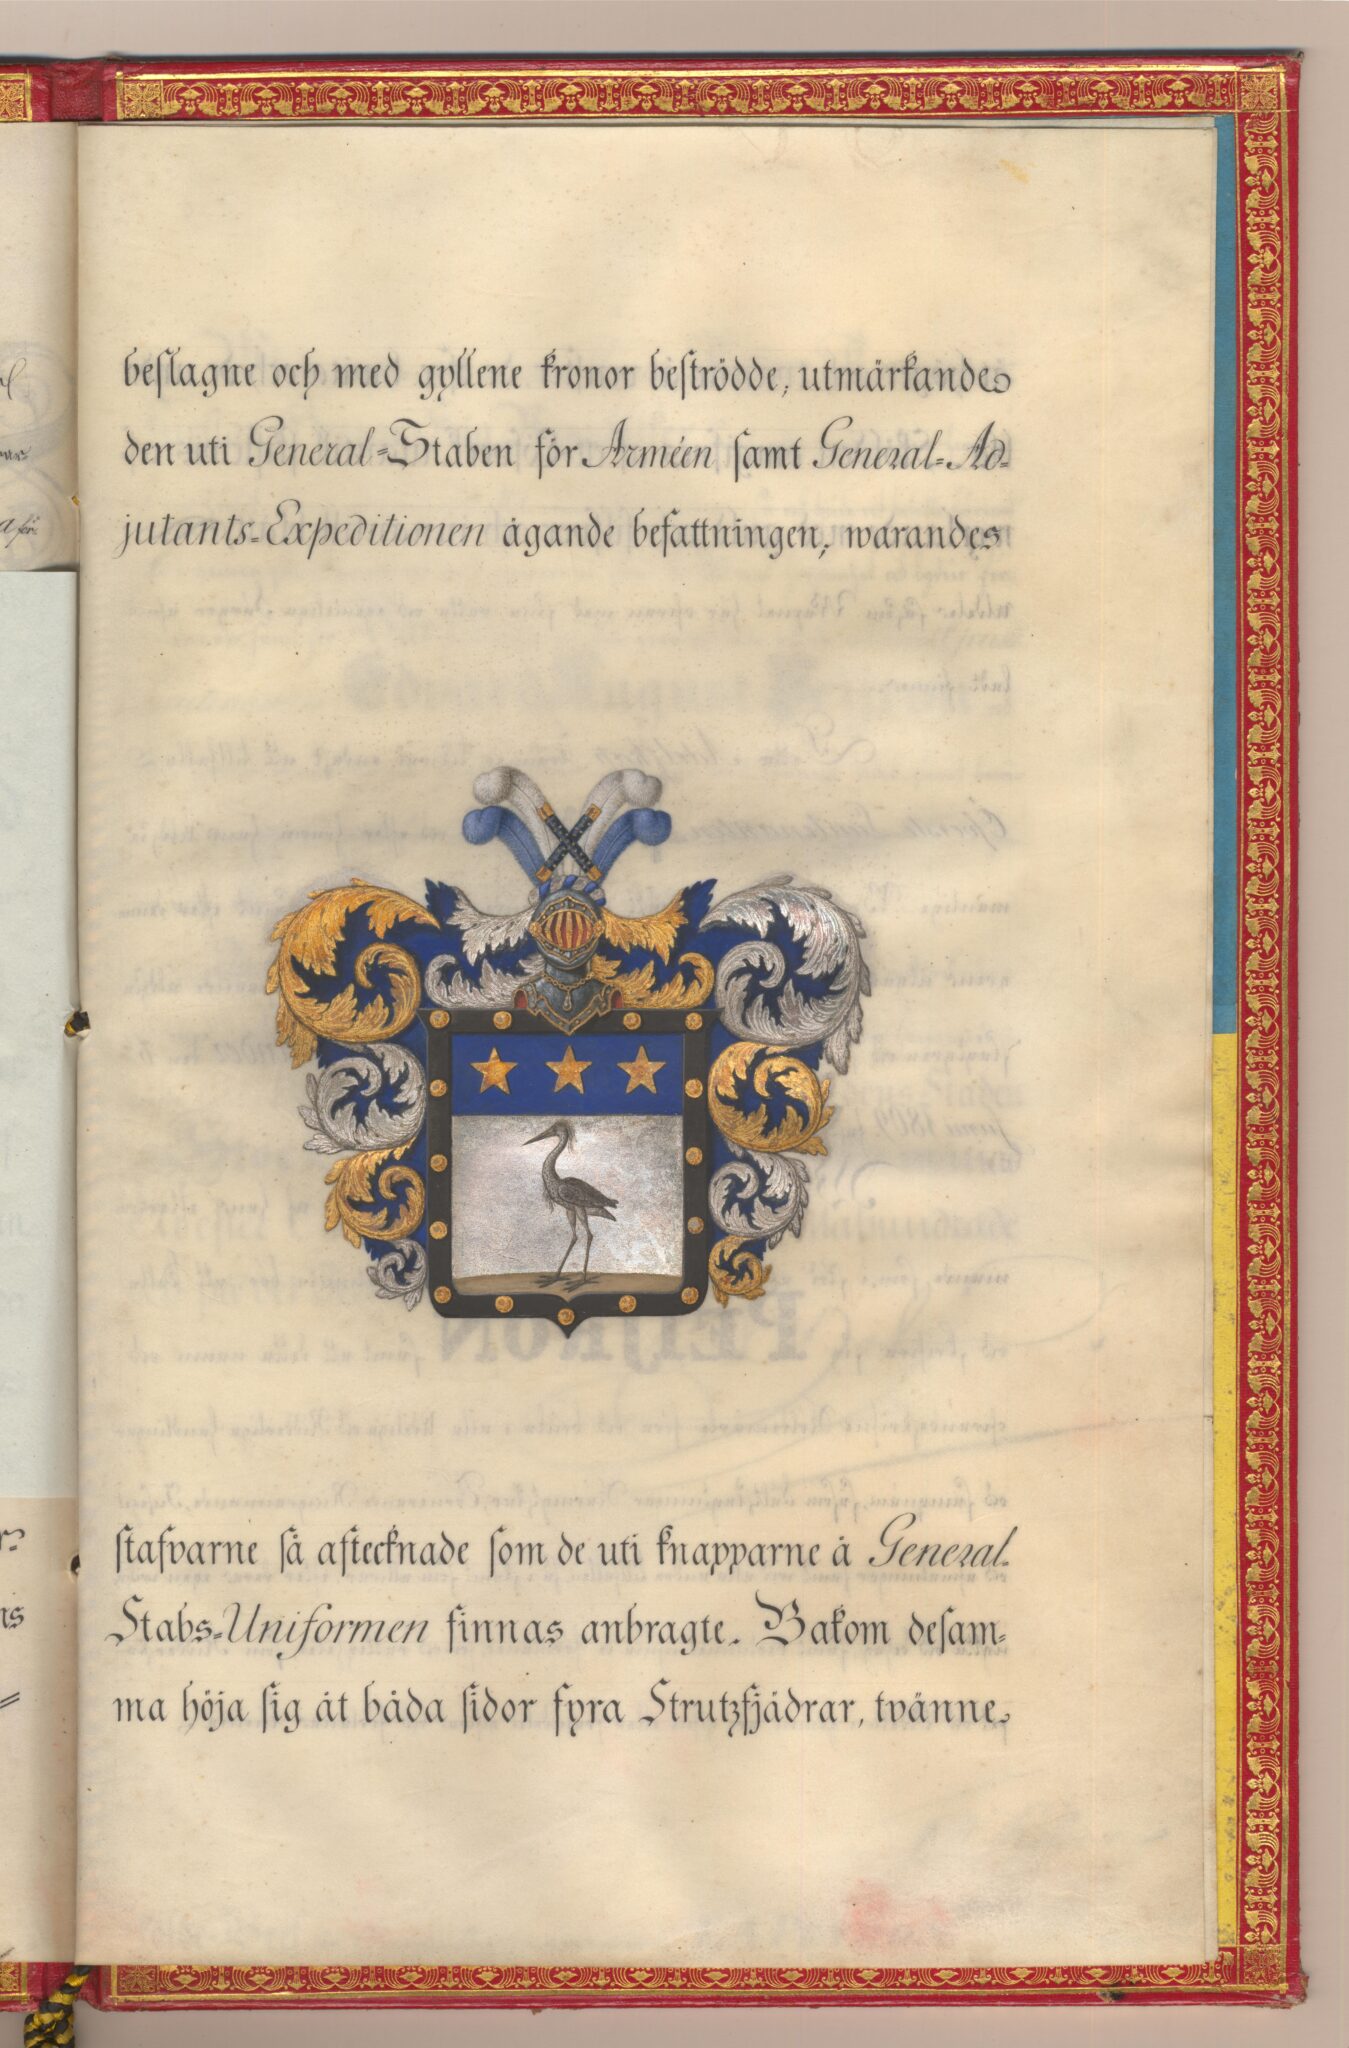 beslagne och med gyllene kronor beströdde, utmärkande
den uti General-Staben för Arméen samt General-Ad-
jutants-Expeditionen ägande befattningen, warandes
stafvarne så aftecknade som de uti knapparne å General-
Stabs-Uniformen finnas anbragte. Bakom desam-
ma höja sig åt båda sidor fyra Strutzfjädrar, tvänne